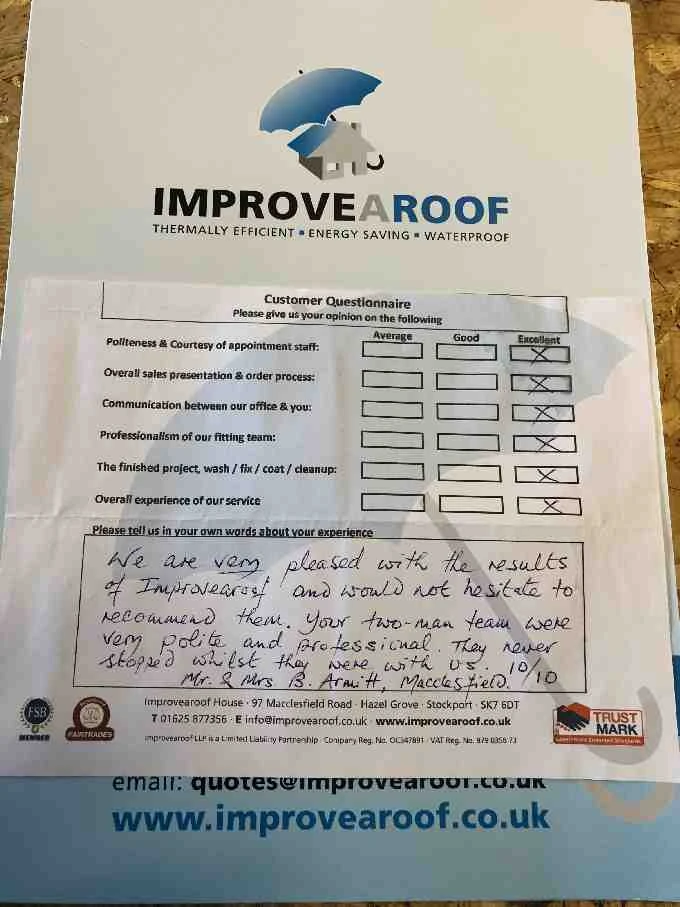 IMPROVEAROOF
THERMALLY EFFICIENT • ENERGY SAVING • WATERPROOF
Customer Questionnaire
Please give us your opinion on the following
Average Good Excellent
Politeness & Courtesy of appointment staff:
Overall sales presentation & order process:
Communication between our office & you:
Professionalism of our fitting team:
The finished project, wash / fix / coat / cleanup:
Overall experience of our service
Please tell us in your own words about your experience
We are very pleased with the results
of Improvearoof and would not hesitate to
recommend them. Your two-man team were
very polite and professional. They never
stopped whilst they were with us. 10/10
Mr. & Mrs B. Armitt, Macclesfield.
Improvearoof House · 97 Macclesfield Road · Hazel Grove · Stockport · SK7 6DT
T 01625 877356 · E info@improvearoof.co.uk · www.improvearoof.co.uk
Improvearoof LLP is a Limited Liability Partnership · Company Reg. No. OC347891 · VAT Reg. No.
FSB
MEMBER
FAIRTRADES
TRUST
MARK
email: quotes@improvearoof.co.uk
www.improvearoof.co.uk